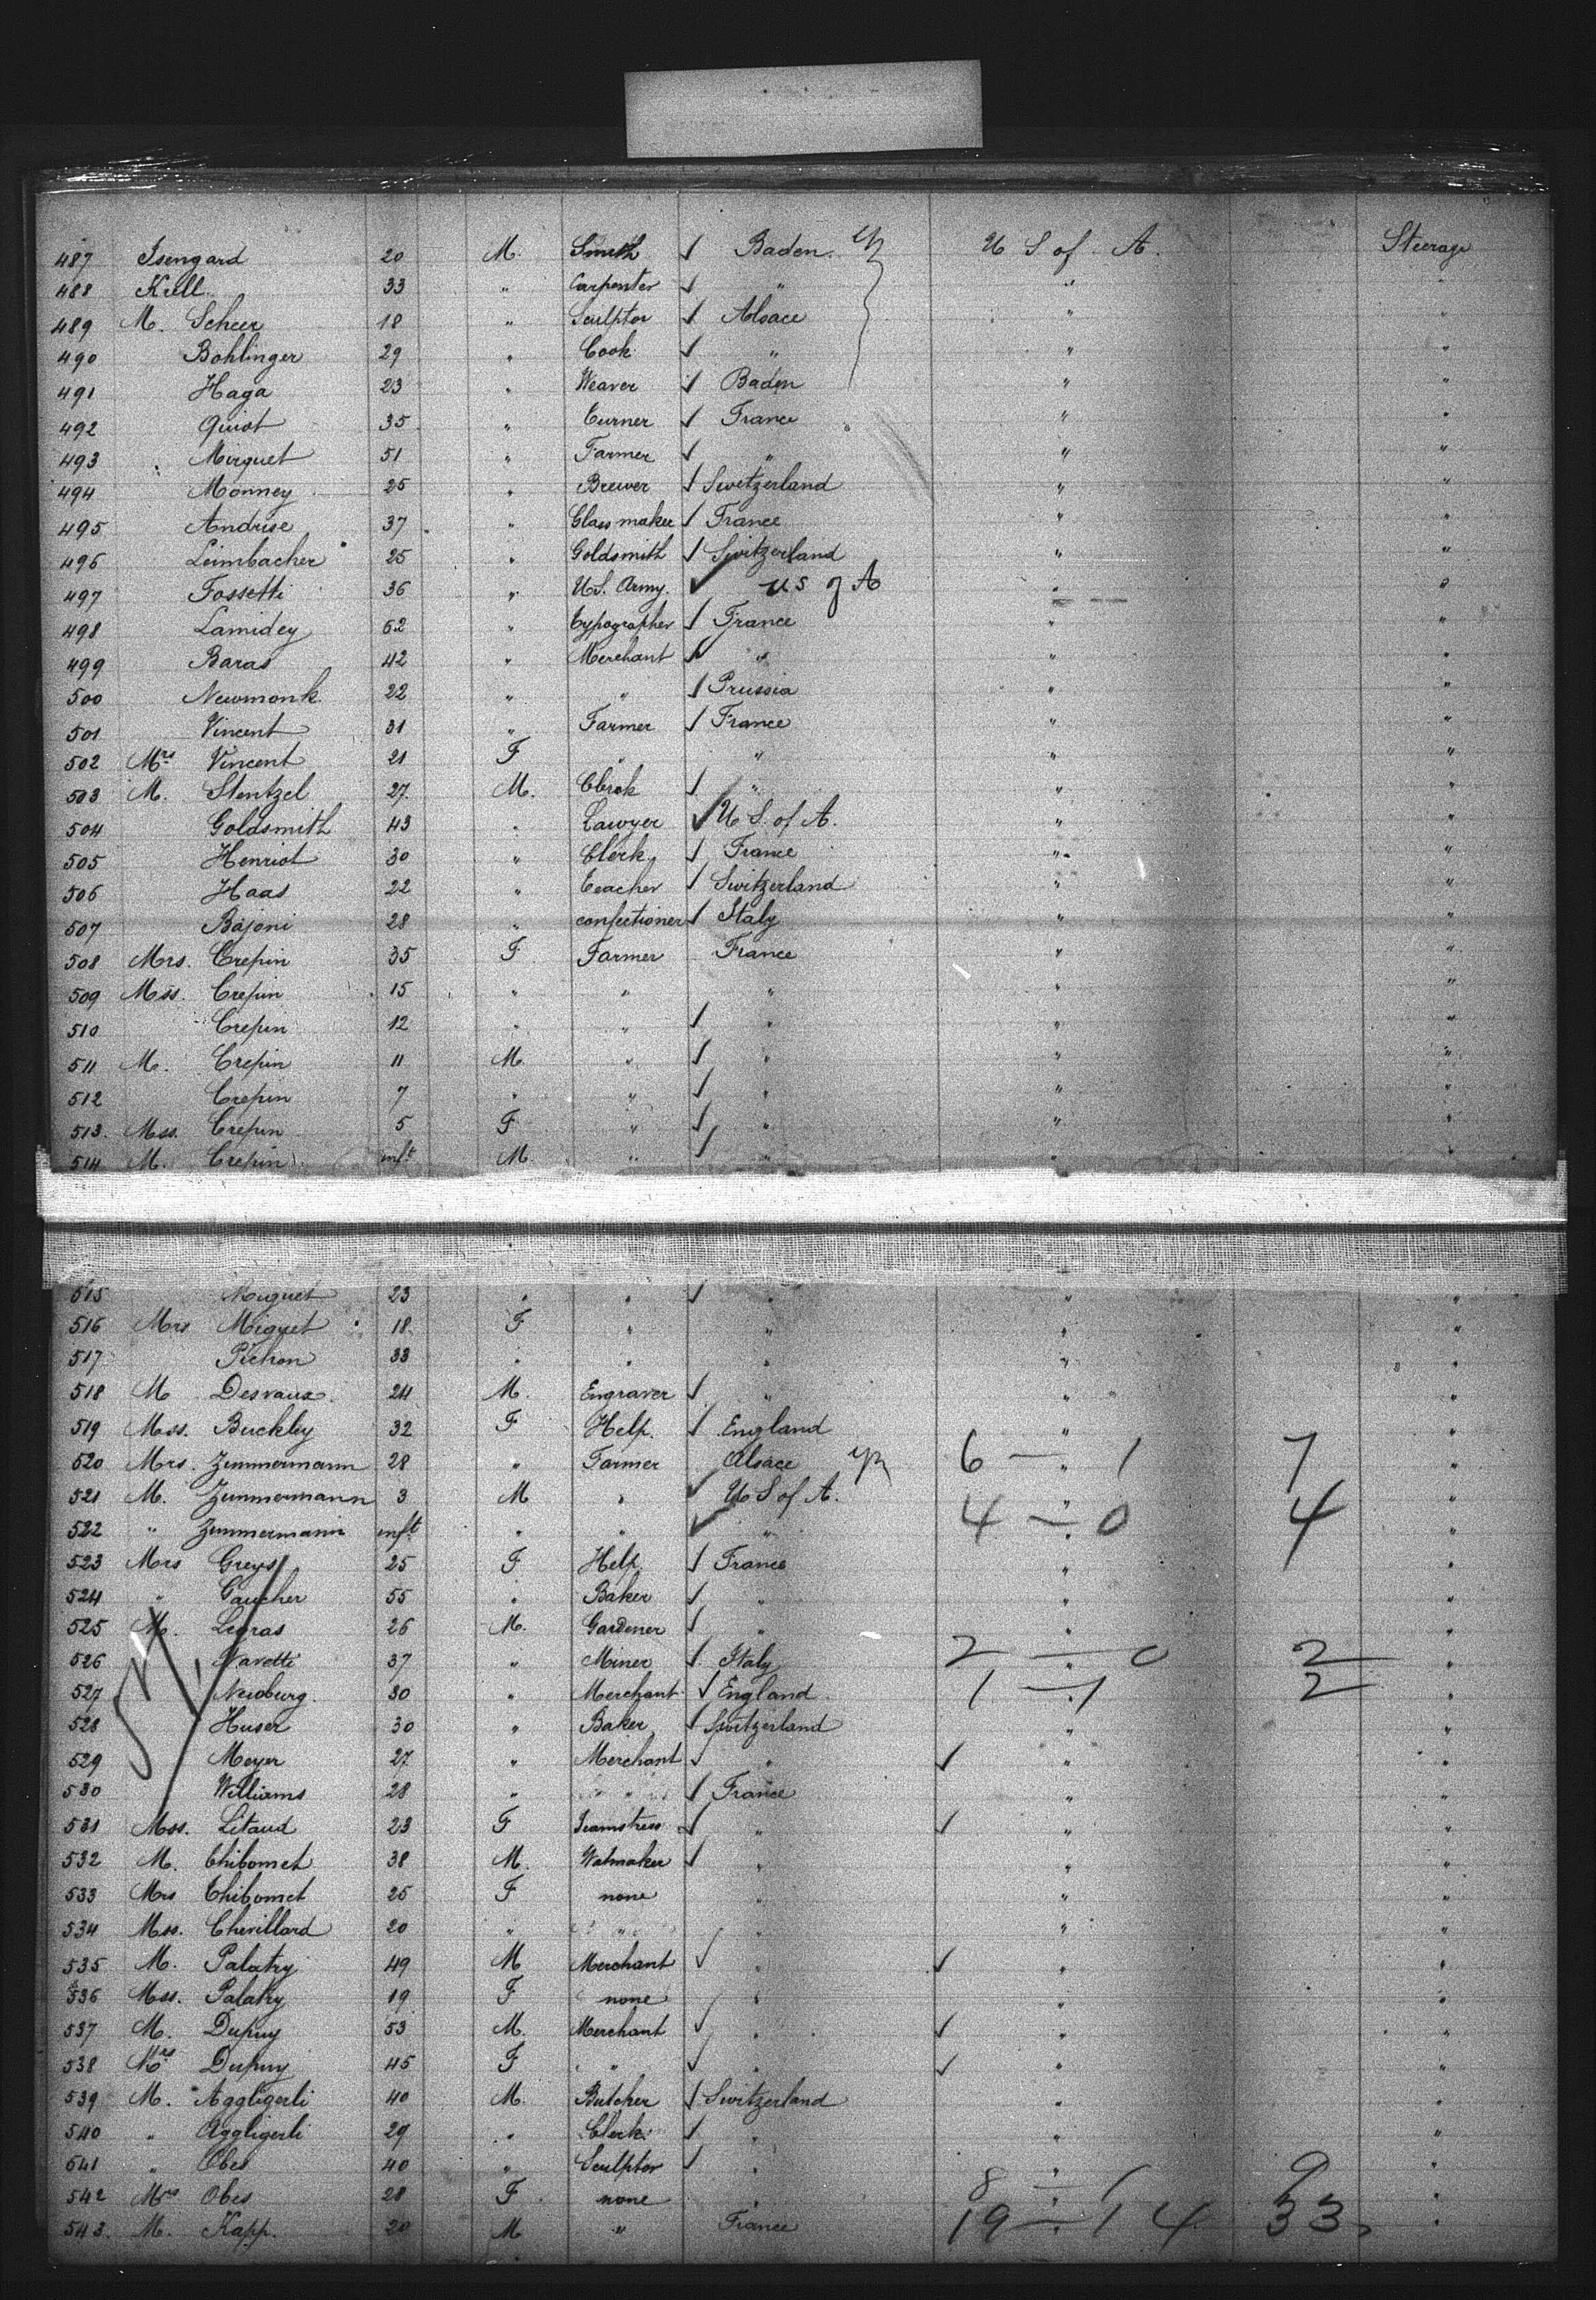 487 Isengard 20 M. Smith √ Baden. U S of A. Steerage
488 Krell 33 " Carpenter √ " " "
489 M. Scheer 18 " Sculptor √ Alsace " "
490 Bohlinger 29 " Cook √ " " "
491 Haga 23 " Weaver √ Baden " "
492 Quiot 35 " Turner √ France " "
493 Mirguet 51 " Farmer √ " " "
494 Monney 25 " Brewer √ Switzerland " "
495 Andrise 37 " Glass maker √ France " "
496 Leimbacher 25 " Goldsmith √ Switzerland " "
497 Fossetti 36 " U.S. Army. √ US of A " "
498 Lamidey 62 " Typographer √ France " "
499 Baras 42 " Merchant √ " " "
500 Newmonk 22 " " √ Prussia " "
501 Vincent 31 " Farmer √ France " "
502 Mrs Vincent 21 F " " " "
503 M. Stentzel 27 M. Clerk √ " " "
504 Goldsmith 43 " Lawyer √ U S. of A. " "
505 Henriot 30 " Clerk √ France " "
506 Haas 22 " Teacher √ Switzerland " "
507 Bajoni 28 " confectioner √ Italy " "
508 Mrs. Crepin 35 F Farmer France " "
509 Mss. Crepin 15 " " " " "
510 Crepin 12 " " √ " " "
511 M. Crepin 11 M " √ " " "
512 Crepin 7 " " √ " " "
513. Mss. Crepin 5 F " √ " " "
514 M. Crepin inft M. " √ " "
515 Miguet 23 " " √ " " "
516 Mrs Miguet 18 F " " " "
517 Pichon 33 " " " " "
518 M Desvaux 24 M. Engraver √ " " "
519 Mss. Buckley 32 F Help. √ England " "
520 Mrs. Zimmermann 28 " Farmer Alsace 6 — 1 7 "
521 M. Zimmermann 3 M " √ U S of A. " "
522 " Zimmermann inft " " √ " 4 — 0 4 "
523 Mrs Greys 25 F Help √ France " "
524 " Gaucher 55 " Baker √ " " "
525 M. Legras 26 M. Gardener √ " " "
526 Navetti 37 " Miner √ Italy 2 — 0 2 "
527 Newburg. 30 " Merchant √ England 1 — 1 2 "
528 Huser 30 " Baker √ Switzerland " "
529 Meyer 27 " Merchant √ " √ " "
530 Williams 28 " " √ France " "
531 Mss. Litaud 23 F Seamstress √ " √ " "
532 M. Thibomet 38 M. Watmaker √ " " "
533 Mrs Thibomet 25 F none " " "
534 Mss. Chevillard 20 " " " " "
535 M. Palatry 49 M Merchant √ " √ " "
536 Mss. Palatry 19 F none " " "
537 M. Dupuy 53 M. Merchant √ " √ " "
538 Mrs Dupuy 45 F " √ " √ " "
539 M. Aggligerli 40 M. Butcher √ Switzerland " "
540 " Aggligerli 29 " Clerk √ " " "
541 " Obes 40 " Sculptor √ " " "
542 Mrs Obes 28 F none " 8 — 1 9 "
543. M. Kapp. 20 M " France 19 — 14 33 "